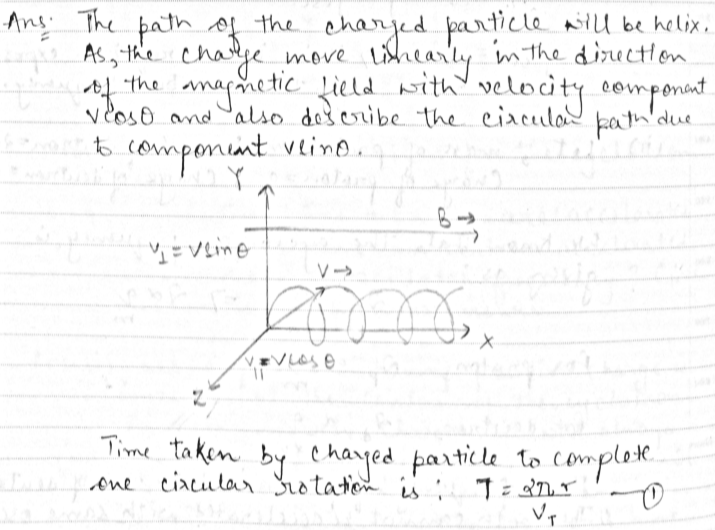 Ans: The path of the charged particle will be helix.
As, the charge move linearly in the direction
of the magnetic field with velocity component
vcosθ and also describe the circular path due
to component vsinθ.
Y
B →
V⊥ = Vsinθ
V →
X
V∥ = Vcosθ
Z
Time taken by charged particle to complete
one circular rotation is : T = 2πr / V_T — ①